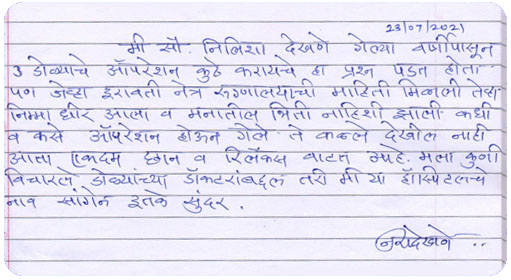 23/07/2021
मी सौ. निलिशा देखणे गेल्या वर्षीपासून
डोळ्याचे ऑपरेशन कुठे करायचे हा प्रश्न पडत होता
पण जेव्हा इरावती नेत्र रुग्णालयाची माहिती मिळाली तेव्हा
निम्मा धीर आला व मनातील भिती नाहिशी झाली. कधी
व कसे ऑपरेशन होऊन गेले ते कळले देखील नाही
आता एकदम छान व रिलॅक्स वाटत आहे. मला कुणी
विचारले डोळ्यांच्या डॉक्टरांबद्दल तरी मी या हॉस्पिटलचे
नाव सांगेन इतके सुंदर.